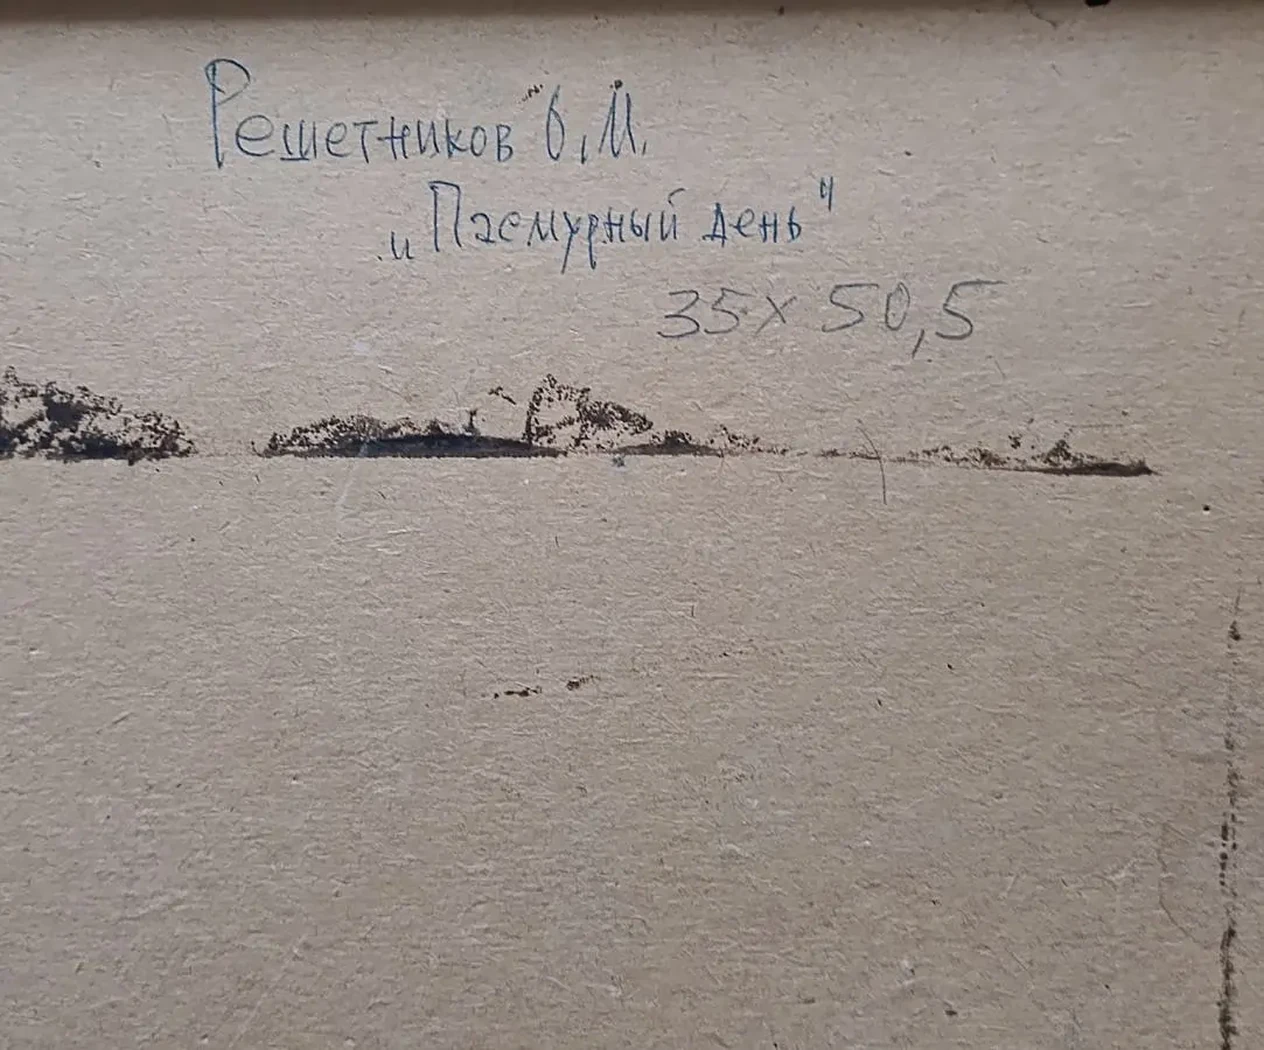 Решетников О.М.
„Пасмурный день"
35х50,5